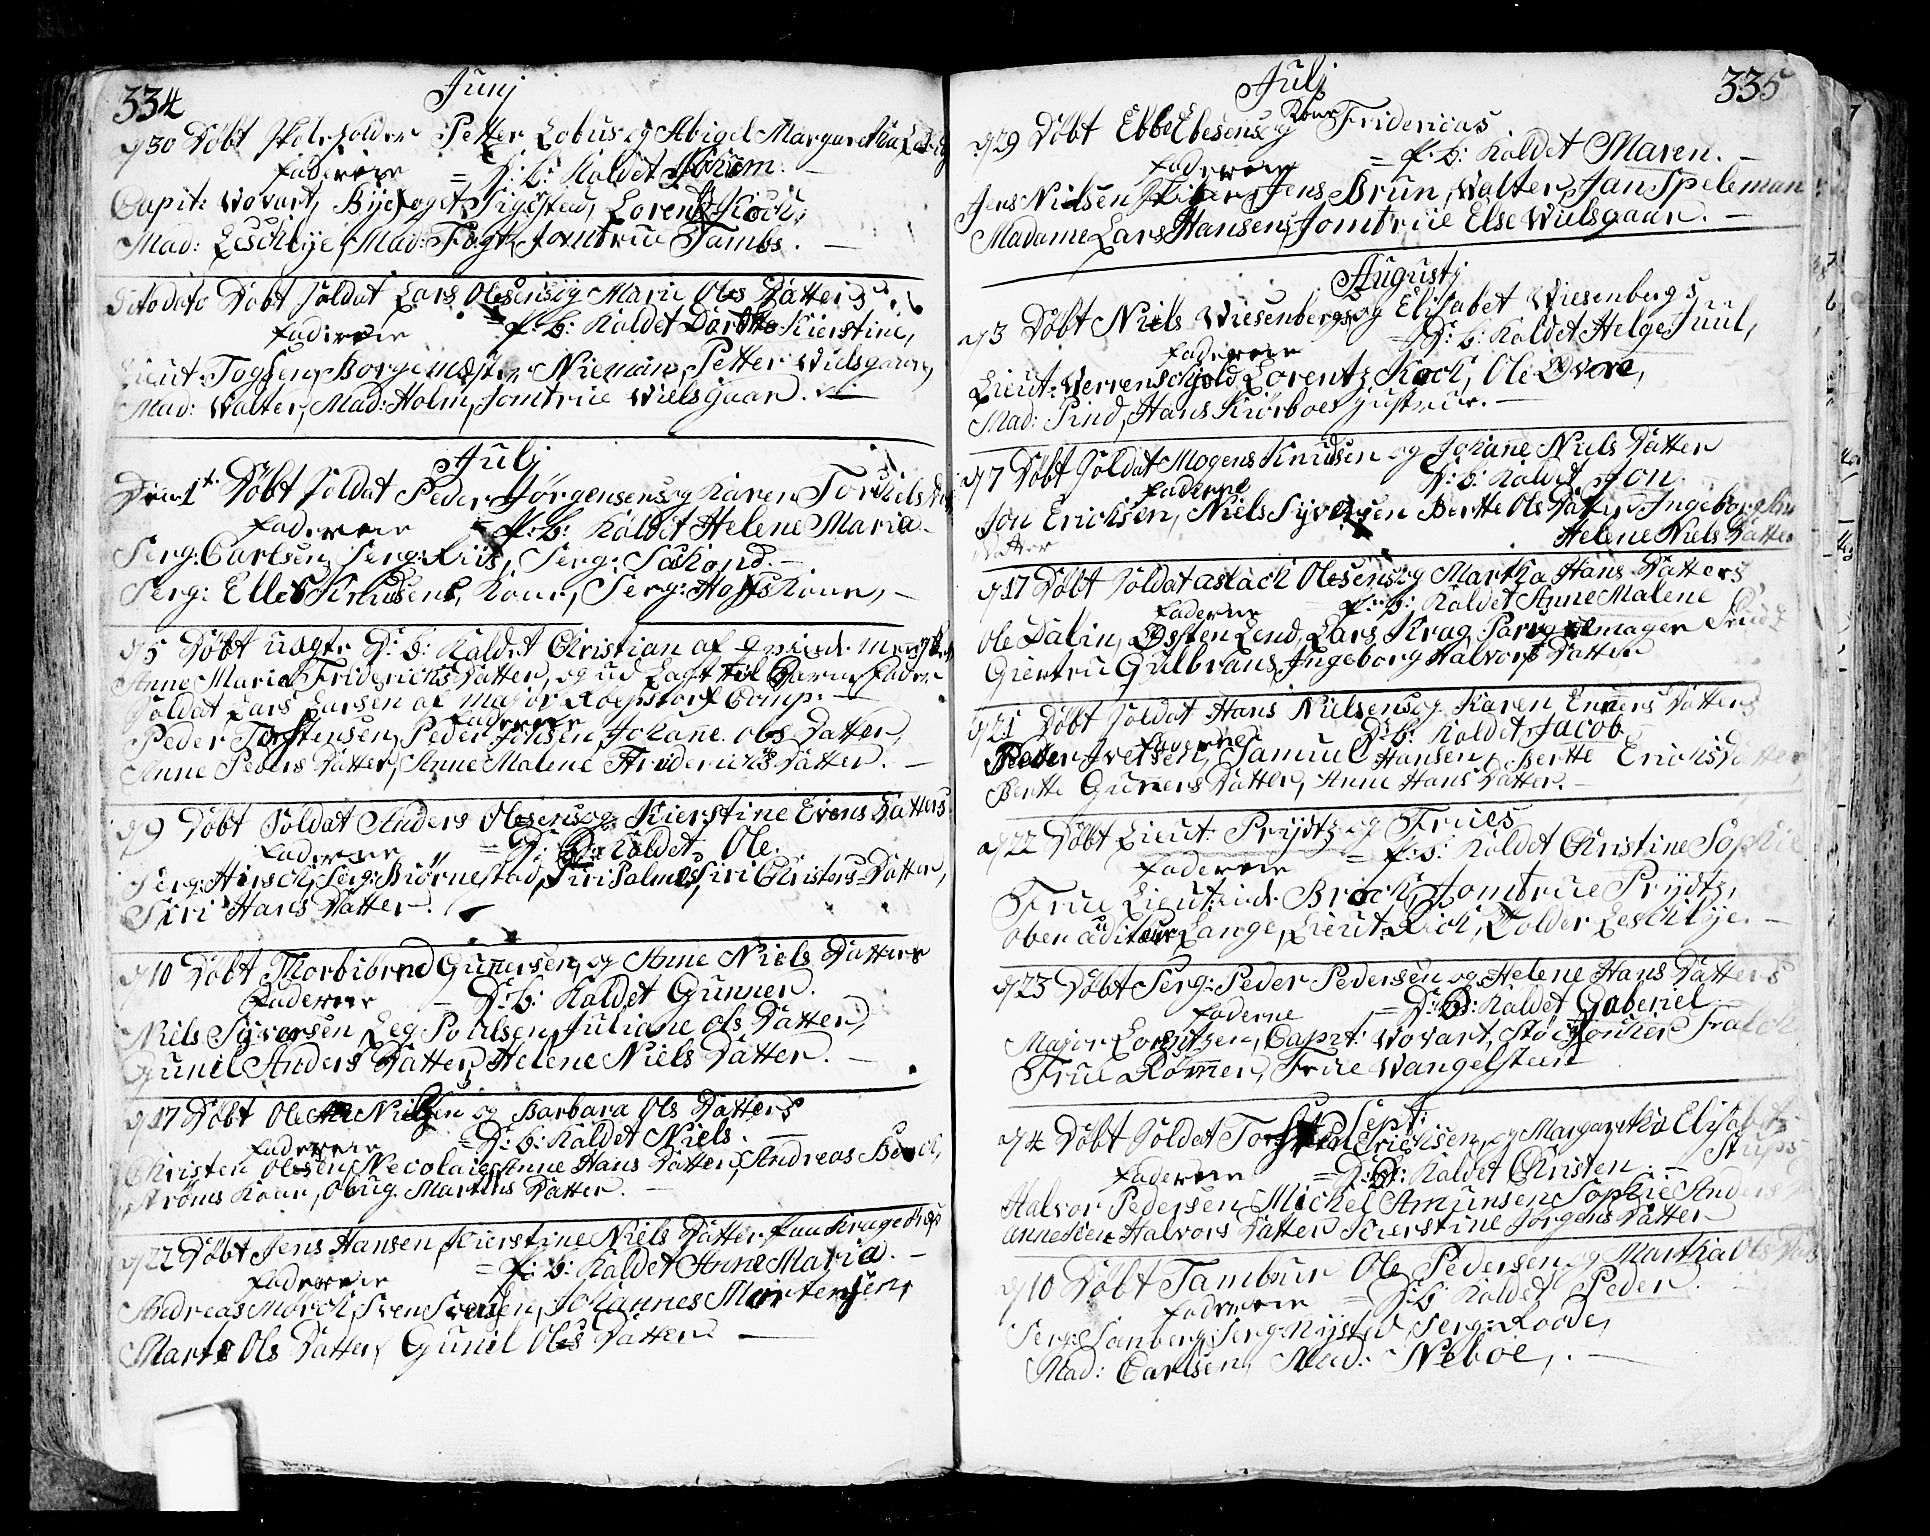 334
Junj
d/30 Döbt Petter Lobus og Abigel Margaretha
Faderne = P: b: Kaldet
Capit: Wovart, Byefoget Sigsted, Lorentz Koch,
Mad: Leschbye, Mad: Fogt, Jomfrue Tambs. —
Dito dato Döbt Soldat Lars Olesens og Marie Ols Datters
Faderne = P: b: Kaldet Dorthe Kierstine,
Lieut: Borgemester Niemann, Petter Wielsgaard,
Mad: Walter, Mad: Holm, Jomfrue Wielsgaar. —
Julj
Den 1t Döbt Soldat Peder Jörgensens og Karen Torkiels
Fadderne = P: b: Kaldet Helene Maria.
Serg: Carlsen, Serg: Riis, Serg: —
Serg: Ellef Knudsens Kone, Serg: Hoffs Kone, —
d/5 Döbt uægte D: b: Kaldet Christian af
Anne Maria Friderichs Datter, og ud Lagt til Barne Fader
Soldat Lars Larsen af Major Comp: —
Fadderne
Peder Torstensen, Peder Johsen, Johanne Ols Datter,
Anne Peders Datter, Anne Malene Friderichs Datter. —
d/9 Döbt Soldat Anders Olesens og Kierstine Evens Datters
Fadderne = D: b: Kaldet Ole.
Serg: Hirsch, Serg: Biörnestad, Siri Christens Datter,
Siri Hans Datter.
d/10 Döbt Thorbiörnd Gunnersen, og Anne Niels Datters
Fadderne — D: b: Kaldet Gunner.
Niels Syversen, Leg Poulsen, Juliane Ols Datter,
Gunil Anders Datter, Helene Niels Datter. —
d/17 Döbt Ole Nielsen og Barbara Ols Datters
Fadderne = D: b: Kaldet Niels. —
Christen Olsen, Necolai Anne Hans Datter, Andreas
Ströms Kone, Martins Datter. —
d/22 Döbt Jens Hansen, Kierstine Niels Datter, fra Krageröe
Fadderne = P: b: Kaldet Anne Maria. —
Andreas Mörch, Sven Svensen, Johannes Mortensen,
Marte Ols Datter, Gunil Oles Datter —
335
Julj
d/29 Döbt Ebbe Ebesens og Kone Fridericas
Faderne = P: b: Kaldet Maren. —
Jens Nielsen Jens Brun, Walter, Jan Speleman
Madame Lars Hansens, Jomfrue Else Wielsgaar. —
Augustj
d/3 Döbt Niels Wiesenbergs og Elisabet Wiesenbergs
Faderne = D: b: Kaldet Helge Juul,
Lieut: Werrenschiold, Lorentz Koch, Ole Överе,
Mad: Pind, Hans Kiörboes Justrue. —
d/7 Döbt Soldat Mogens Knudsen og Johane Niels Datter
Faderne D: b: Kaldet Jon.
Jon Ericksen, Niels Syversen Berthe Ols Datter, Ingeborg
Datter Helene Niels Datter
d/17 Döbt Soldat Aslack Olesens og Martha Hans Datters
Faderne P: b: Kaldet Anne Malene
Ole Dalin, Östen Lend, Lars Krag Parygmager
Giertru Gulbrans, Ingeborg Halvors Datter
d/21 Döbt Soldat Hans Nielsens og Karen Enners Datters
Faderne D: b: Kaldet Jacob
Peder Iversen, Samuel Hansen, Berthe Ericks Datter
Berthe Gunners Datter, Anne Hans Datter. —
d/22 Döbt Lieut: Prydtz og Frues
Faderne = P: b: Kaldet Christine Sophie
Frue Lieutinde Brock, Jomfrue Prydtz,
Ober auditeur Lange, Lieut: Rich, Tolder Leschbye. —
d/23 Döbt Serg: Peder Pedersen og Helene Hans Datters
Faderne = D: b: Kaldet Gabriel
Major Lorentzen, Capit: Wovart, Stöckjonker
Frue Rommer, Frue Wangelsteen
Sept:
d/4 Döbt Soldat Torsten Ericksen, og Margaretha Elisabets
Faderne = D: b: Kaldet Christen. — Stups
Halvor Pedersen, Michel Amunsen, Sophie Anders
Anne Halvors Datter Kierstine Jörgens Datter
d/10 Döbt Tambur Ole Pedersen, og Martha Ols
Faderne = D: b: Kaldet Peder.
Serg: Sanberg, Serg: Nysted, Serg: Roode,
Mad: Carlsen, Mad: Neboe, . —